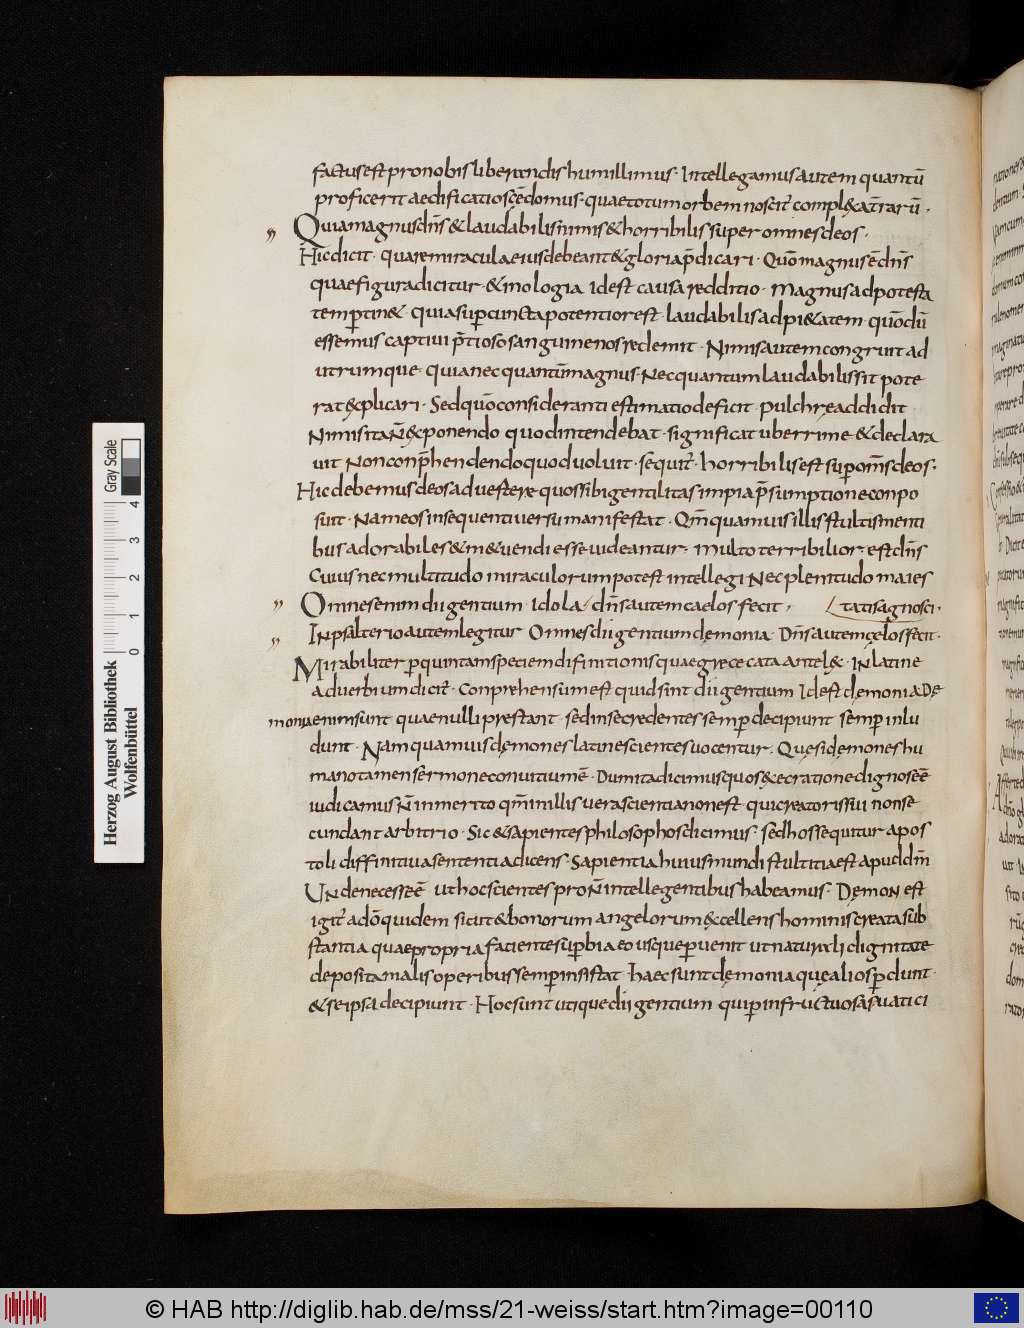 factus est pro nobis liberandis humillimus· Intellegamus autem quantū
proficerit aedificatio scē domus· quae totum orbem noscit̄ compl&a t̄rarū·
Quia magnus dn̄s & laudabilis nimis & horribilis super omnes deos·
Hic dicit· quare miracula eius debeant & gloria p̄dicari· Quō magnus ē dn̄s
quae figura dicitur· &imologia id est causa redditio· Magnus ad potesta
tem ꝑtin&· quia suꝑ cuncta potentior est· laudabilis ad pi&atem· quō dū
essemus captivi p̄tioso sanguine nos redemit· Nimis autem congruit ad
utrumque· quia nec quantū magnus· Nec quantum laudabilis sit pote
rat &plicari· Sed quō consideranti estimatio deficit pulchre addidit
Nimis ita n̄ &ponendo quod intendebat· significat uberrime & declara
vit Non conp̄hendendo quod voluit· sequit̄· horribilis est suꝑ om̄s deos·
Hic debemus deos advertere quos sibi gentilitas impia p̄sumptione conpo
suit· Nam eos in sequenti versu manifestat· Qm̄ quamuis illis stultis menti
bus adorabiles & m&uendi esse videantur· multo terribilior· est dn̄s
Cuius nec multitudo miraculorum potest intellegi Nec plenitudo maies
Omnes enim dii gentium· idola / dn̄s autem caelos fecit· tatis agnosci·
IN psalterio autem legitur Omnes dii gentium demonia· Dn̄s autem celos fecit·
Mirabiliter ꝑ quintam speciem difinitionis quae grece cata antel&· IN latine
adverbium dicit̄· Conprehensum est quid sint dii gentium Id est demonia De
monia enim sunt quae nulli prestant· sed in se credentes semꝑ decipiunt semꝑ inlu
dunt· Nam quamuis demones latine scientes vocentur· Que si demones hu
mano tamen sermone convitium ē· Dum ita dicimus quos &ecratione dignos eē
iudicamus n̄ inmerito qm̄ in illis vera scientia non est qui creatoris sui non se
cundant arbitrio· Sic & sapientes philosophos dicimus· sed hos sequitur apos
toli diffinitiva sententia dicens· Sapientia huius mundi stultitia est apud dm̄
UNde necesse eē ut hoc scientes pro n̄ intellegentibus habeamus· Demon est
igit̄ ad ō quidem sicut & bonorum angelorum &cellens hominis creata sub
stantia quae propria faciente suꝑbia eo usque ꝑvenit ut naturali dignitate
deposita malis operibus semꝑ insistat· haec sunt demonia que alios ꝑdunt·
& se ipsa decipiunt· Hoc sunt utique dii gentium qui ꝑ infructuosas vatici
Herzog August Bibliothek
Wolfenbüttel
Gray Scale
0 1 2 3 4
© HAB http://diglib.hab.de/mss/21-weiss/start.htm?image=00110